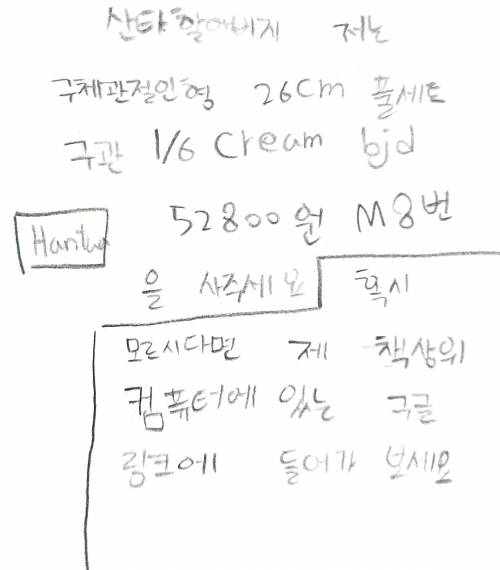 산타할아버지 저는
구체관절인형 26cm 풀세트
구관 1/6 Cream bjd
52800원 M8번
을 사주세요
혹시
모르시다면 제 책상위
컴퓨터에 있는 구글
링크에 들어가 보세요